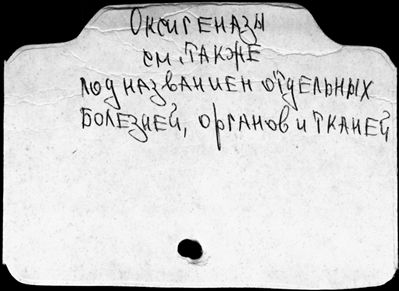 Оксигеназы
см. также
под названием отдельных
болезней, органов и тканей